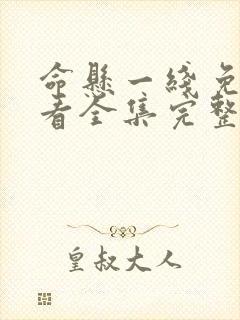 命悬一线免
看全集完整
皇叔大人